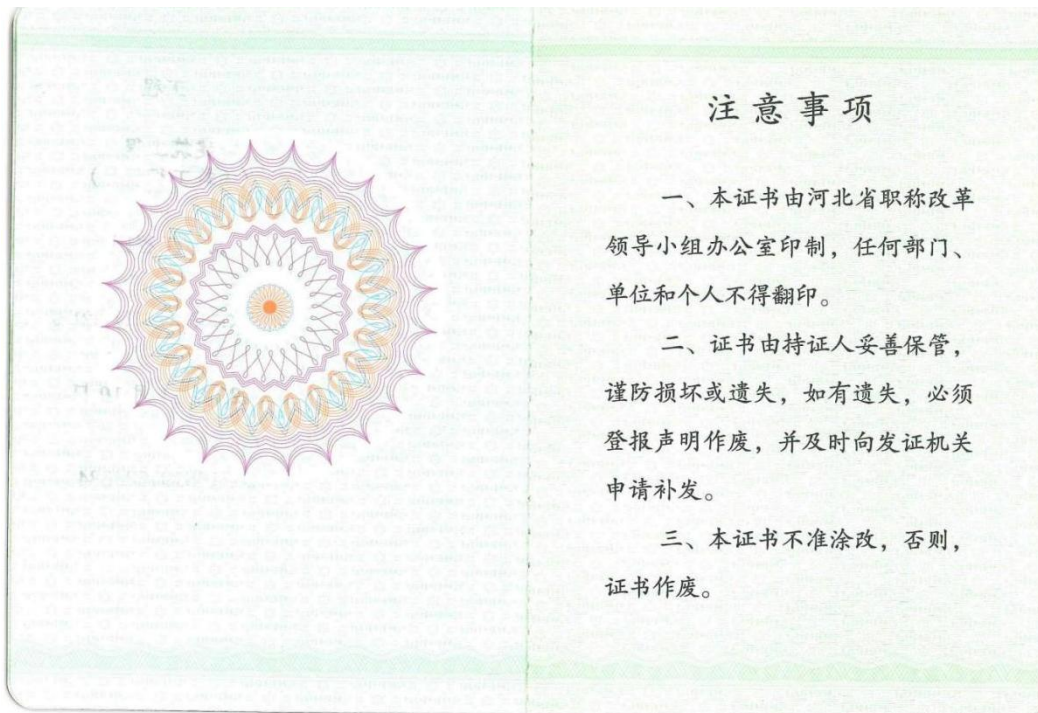 注意事项
一、本证书由河北省职称改革
领导小组办公室印制，任何部门、
单位和个人不得翻印。
二、证书由持证人妥善保管，
谨防损坏或遗失，如有遗失，必须
登报声明作废，并及时向发证机关
申请补发。
三、本证书不准涂改，否则，
证书作废。